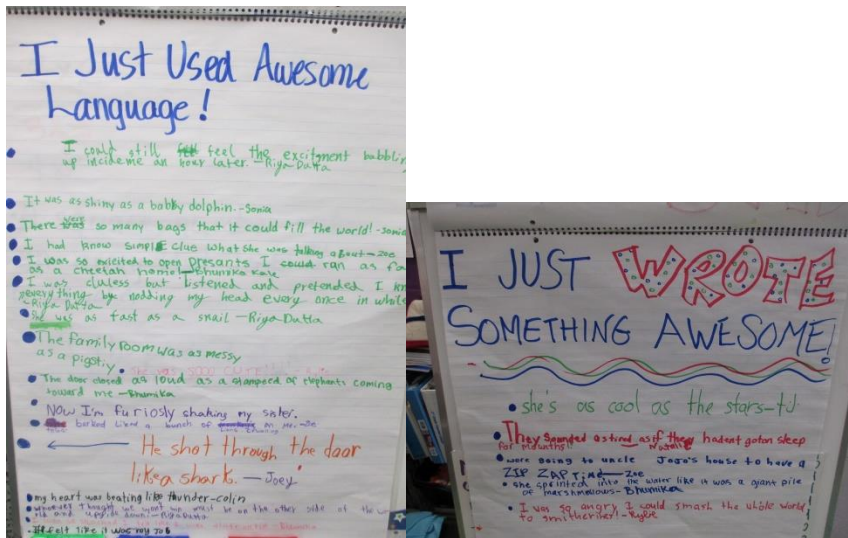 I Just Used Awesome
Language!
I could still feel the excitgment bubblin
up incide me an hour later. -Riya Datta
It was as shiny as a babby dolphin. -Sonia
There were so many bags that it could fill the world! -Sonia
I had know simple clue what she was talking about - Zoe
I was so exicited to open presants I could ran as fa
as a cheetah home! - Bhumika
I was cluless but listened and pretended I kn
everything by nodding my head every once in whole
-Riya Datta
She was as fast as a snail -Riya Datta
The family room was as messy
as a pigsty
she was SOOO
The door closed as loud as a stamped of elephants coming
toward me -Bhumika
NOW I'm furiosly shaking my sister.
barked liked a bunch of
He shot through the door
like a shark. - Joey
my heart was beating like thunder -colin
thought we must be on the other side of the wo
and upside down! -Riya Datta
It felt like it was my job
I JUST WROTE
SOMETHING AWESOME!
she's as cool as the stars - TJ
They sounded as tired as if they hadent goton sleep
for mounths!
were going to uncle JoJo's house to have a
ZIP ZAP Time - Zoe
she sprinted into the water like it was a giant pile
of marshmelows - Bhumika
I was so angry I could smash the whole world
to smitherines! - Rylie